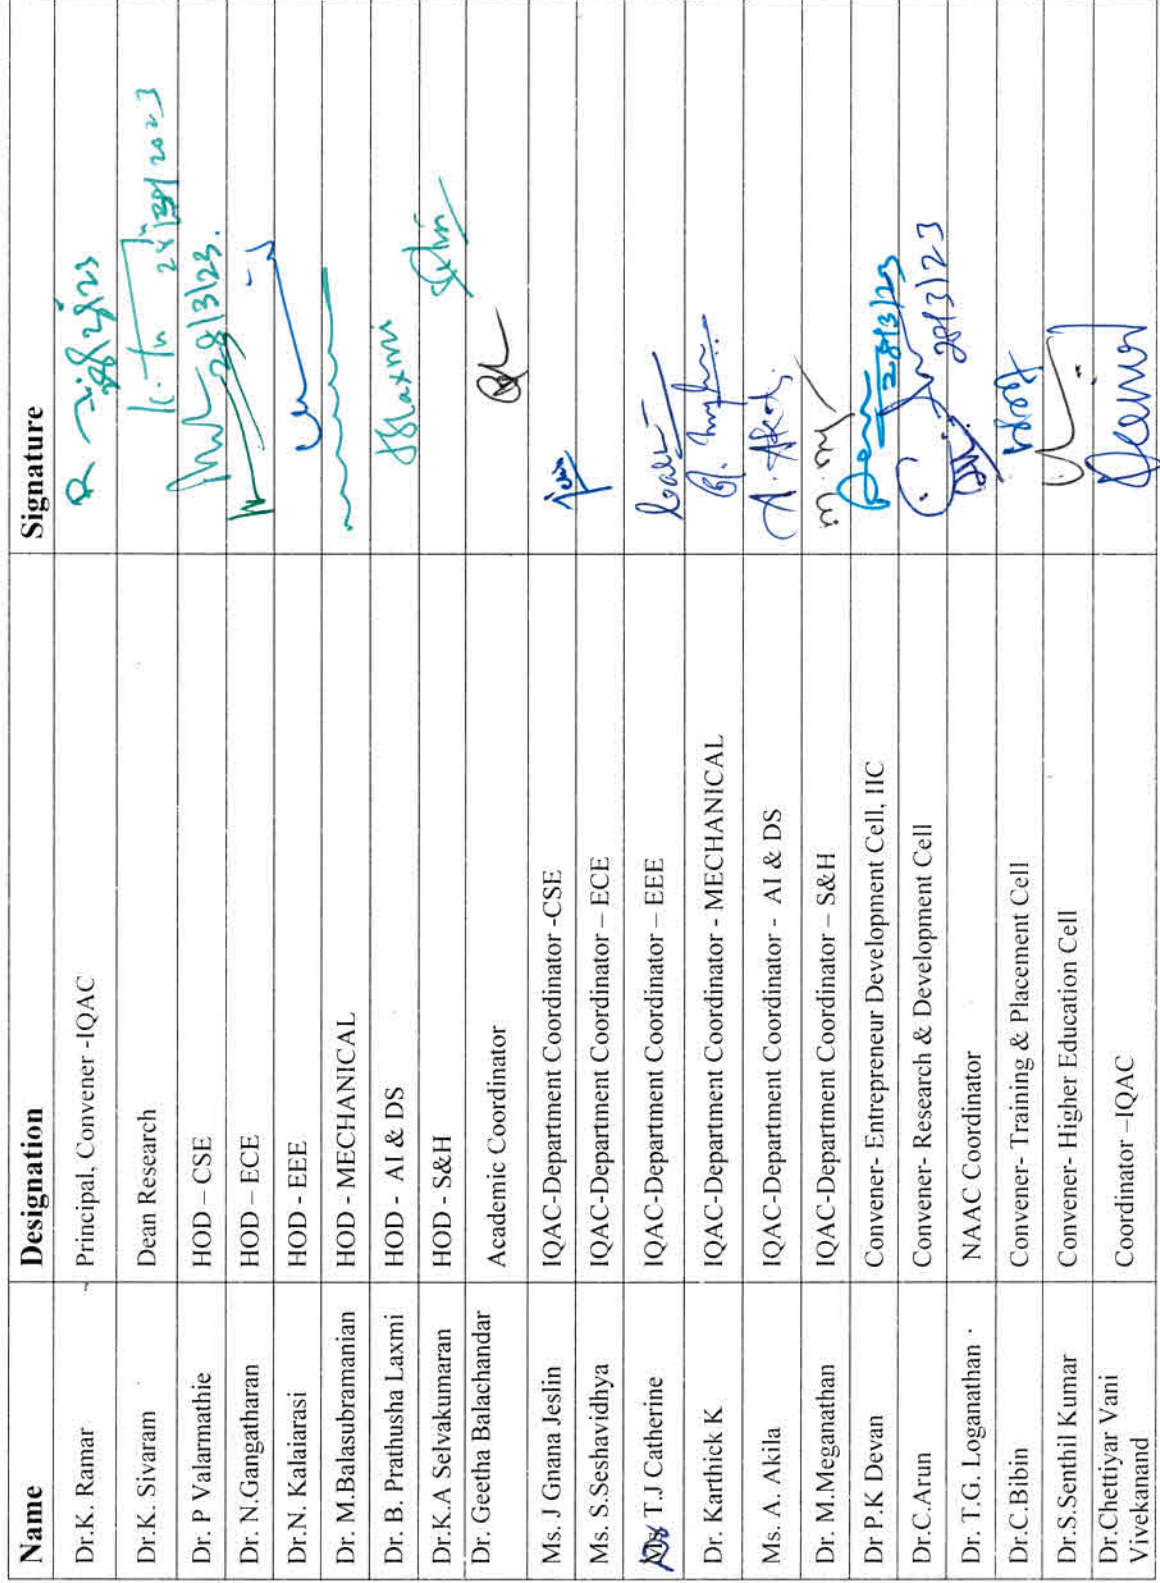 Name Designation Signature
Dr.K. Ramar Principal, Convener -IQAC
Dr.K. Sivaram Dean Research
Dr. P Valarmathie HOD – CSE 28/3/23.
Dr. N.Gangatharan HOD – ECE
Dr.N. Kalaiarasi HOD - EEE
Dr. M.Balasubramanian HOD - MECHANICAL
Dr. B. Prathusha Laxmi HOD - AI & DS
Dr.K.A Selvakumaran HOD - S&H
Dr. Geetha Balachandar Academic Coordinator
Ms. J Gnana Jeslin IQAC-Department Coordinator -CSE
Ms. S.Seshavidhya IQAC-Department Coordinator – ECE
T.J Catherine IQAC-Department Coordinator – EEE
Dr. Karthick K IQAC-Department Coordinator - MECHANICAL
Ms. A. Akila IQAC-Department Coordinator - AI & DS
Dr. M.Meganathan IQAC-Department Coordinator – S&H
Dr P.K Devan Convener- Entrepreneur Development Cell, IIC 28/3/23
Dr.C.Arun Convener- Research & Development Cell 28/3/23
Dr. T.G. Loganathan NAAC Coordinator
Dr.C.Bibin Convener- Training & Placement Cell
Dr.S.Senthil Kumar Convener- Higher Education Cell
Dr.Chettiyar Vani
Vivekanand Coordinator –IQAC